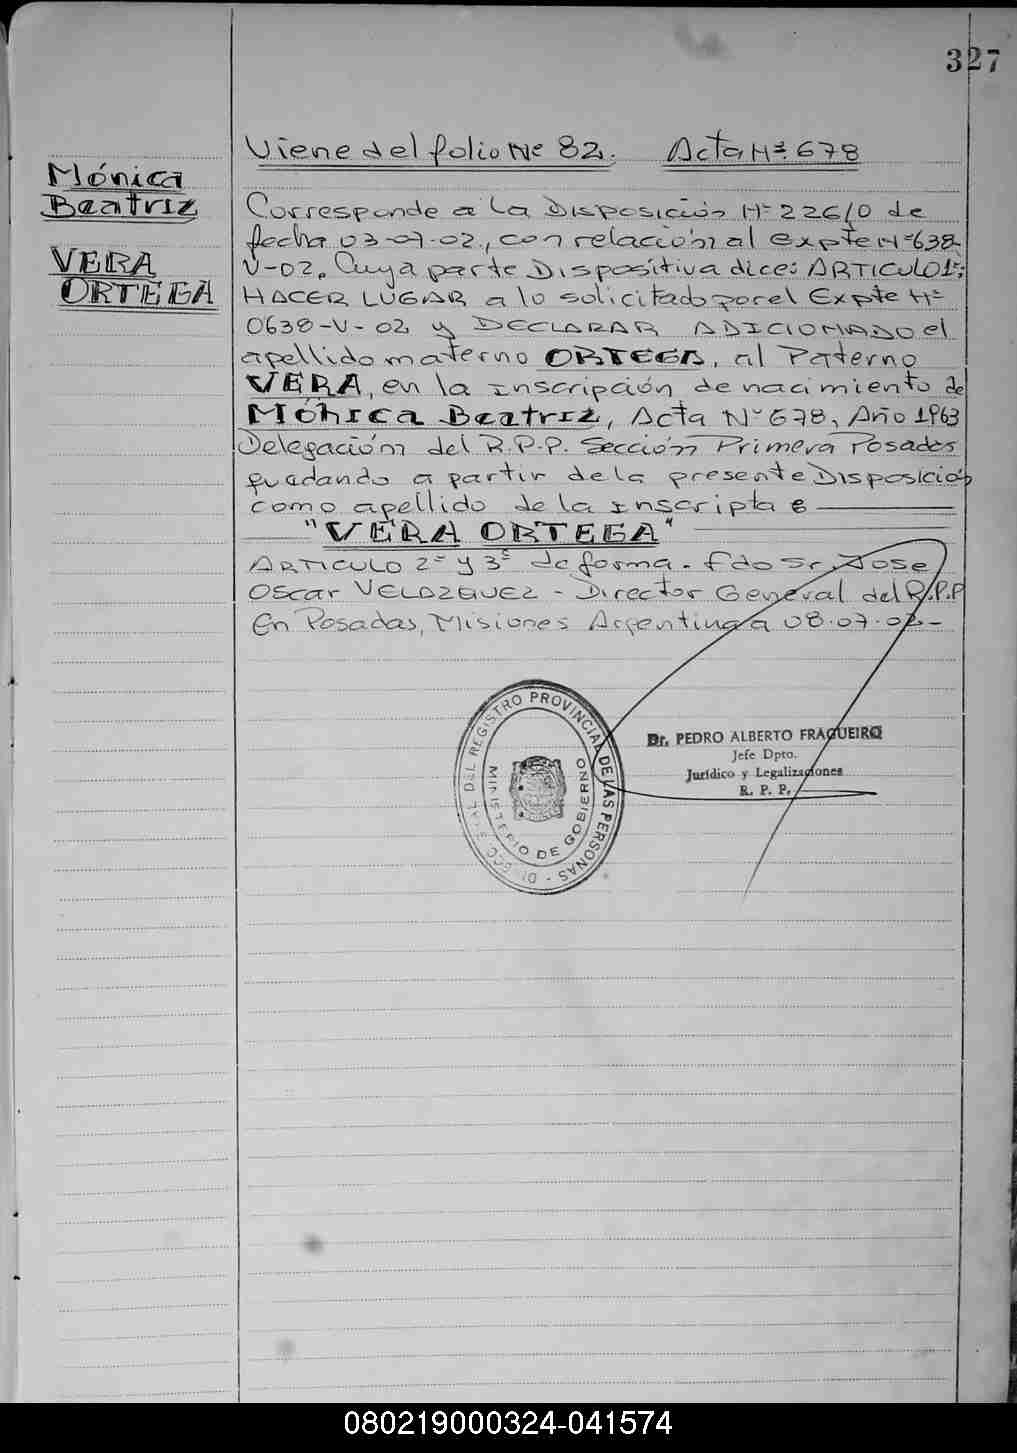 327
Viene del folio Nº 82. Acta Nº 678
Mónica
Beatriz
VERA
ORTEGA
Corresponde a la Disposición Nº 226/0 de
fecha 03-07-02, con relación al expte Nº 638-
V-02. Cuya parte Dispositiva dice: ARTICULO 1º;
HACER LUGAR a lo solicitado por el Expte Nº
0638-V-02 y DECLARAR ADICIONADO el
apellido materno ORTEGA, al Paterno
VERA, en la inscripción de nacimiento de
Mónica Beatriz, Acta Nº 678, Año 1963
Delegación del R.P.P. Sección Primera Posadas
quedando a partir de la presente Disposición
como apellido de la inscripta e
"VERA ORTEGA"
ARTICULO 2º y 3º de forma. Fdo Sr. Jose
Oscar VELAZQUEZ - Director General del R.P.P
En Posadas, Misiones Argentina a 08.07.02-
DIRECC. GRAL DEL REGISTRO PROVINCIAL DE LAS PERSONAS -
MINISTERIO DE GOBIERNO
Dr. PEDRO ALBERTO FRAGUEIRO
Jefe Dpto.
Jurídico y Legalizaciones
R. P. P.
080219000324-041574